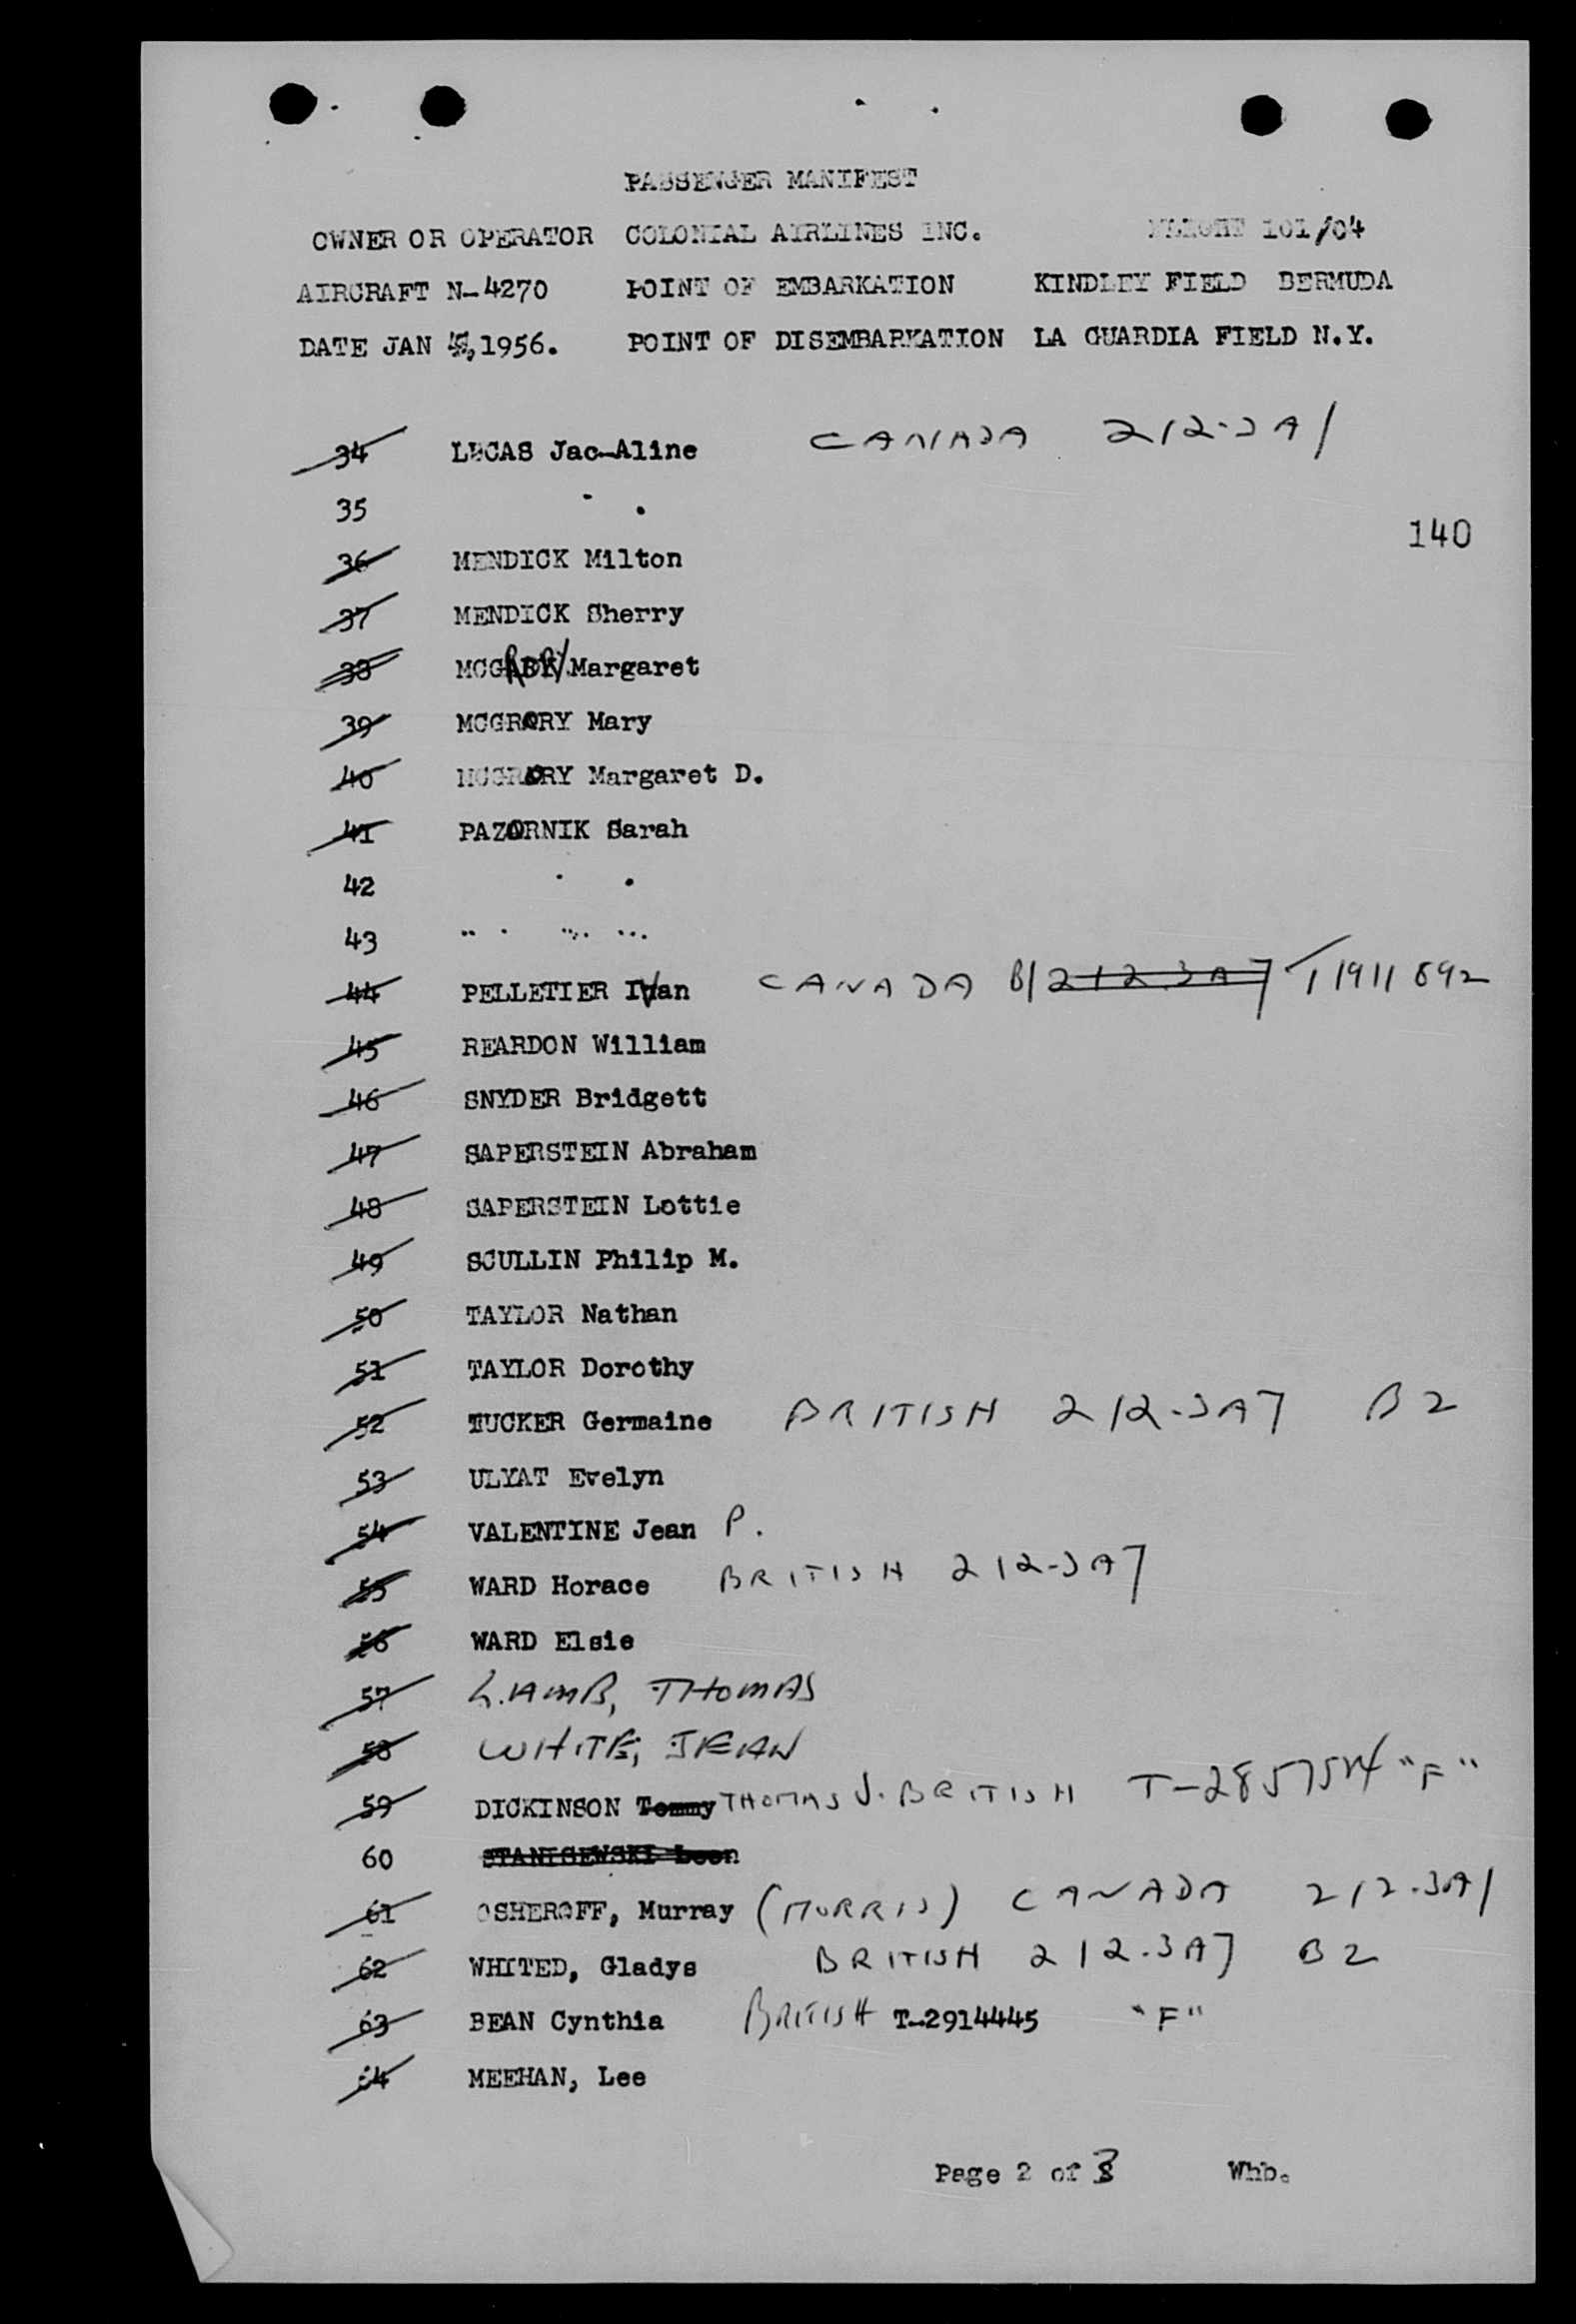 PASSENGER MANIFEST
OWNER OR OPERATOR COLONIAL AIRLINES INC. FLIGHT 101/04
AIRCRAFT N-4270 POINT OF EMBARKATION KINDLEY FIELD BERMUDA
DATE JAN ,1956. POINT OF DISEMBARKATION LA GUARDIA FIELD N.Y.
34 LUCAS Jac-Aline CANADA 212-3A/
35
140
36 MENDICK Milton
37 MENDICK Sherry
38 MCGRORY Margaret
39 MCGRORY Mary
40 MCGRORY Margaret D.
41 PAZORNIK Sarah
42
43
44 PELLETIER Ivan CANADA B/ 212.3A7 T1911892
45 REARDON William
46 SNYDER Bridgett
47 SAPERSTEIN Abraham
48 SAPERSTEIN Lottie
49 SCULLIN Philip M.
50 TAYLOR Nathan
51 TAYLOR Dorothy
52 TUCKER Germaine BRITISH 212-3A7 B2
53 ULYAT Evelyn
54 VALENTINE Jean P.
55 WARD Horace BRITISH 212-3A7
56 WARD Elsie
57 LAMB, THOMAS
58 WHITE, JEAN
59 DICKINSON Tommy THOMAS J. BRITISH "F"
60 STANISEWSKI Leon
61 OSHEROFF, Murray (MORRIS) CANADA 212.3A/
62 WHITED, Gladys BRITISH 212.3A7 B2
63 BEAN Cynthia BRITISH T-2914445 "F"
64 MEEHAN, Lee
Page 2 of 3 Whb.